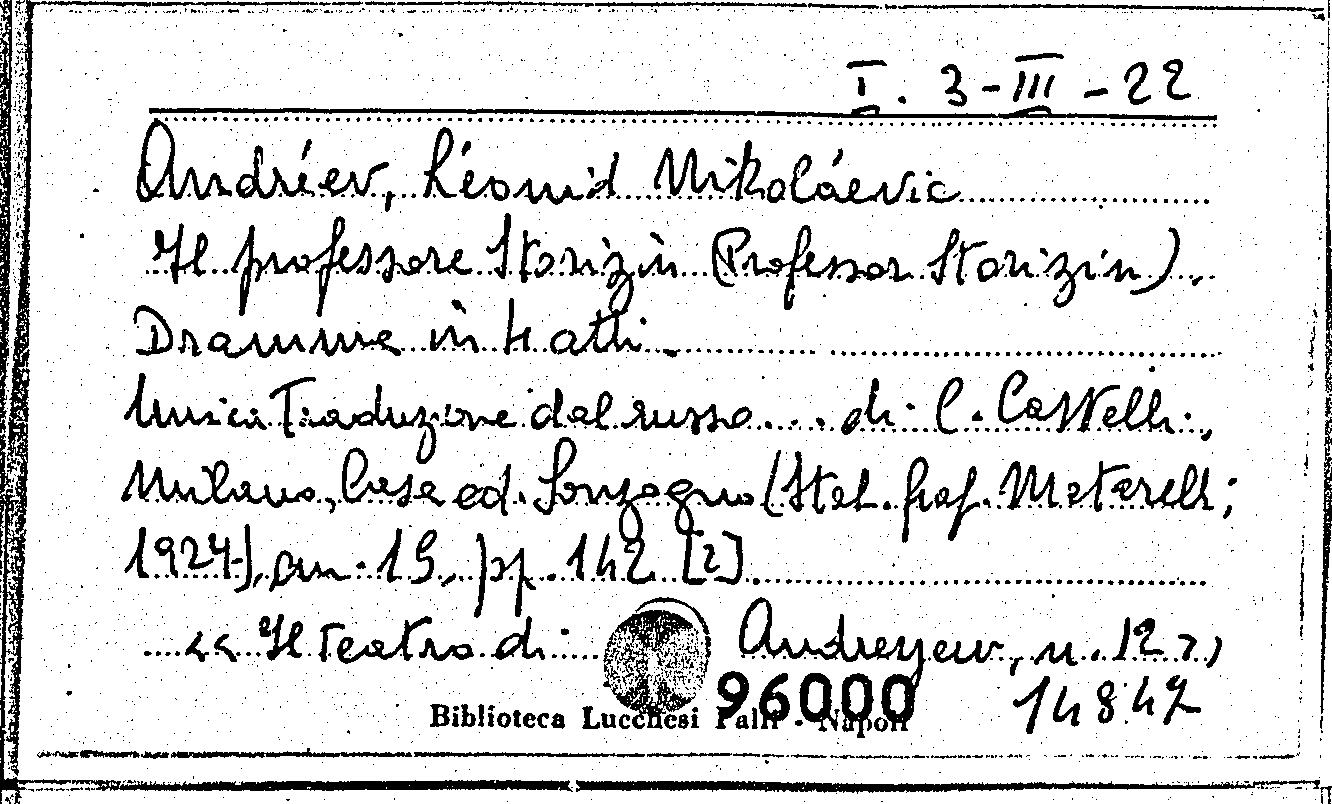 I. 3-III-22
Andréev, Léonid Nikoláevic
Il professore Storizin (Professor Storizin).
Dramma in 4 atti.
Unica Traduzione dal russo... di C. Castelli.,
Milano, Casa ed. Sonzogno (Stab. graf. Matarelli;
1924), cm. 19, pp. 142 [2].
<< Il Teatro di Andreyew, n. 12 >>
96000 14847
Biblioteca Lucchesi Palli - Napoli